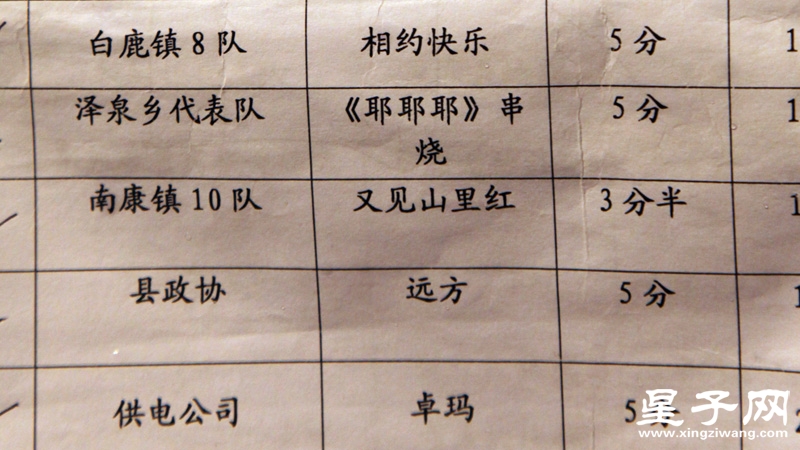 白鹿镇8队 相约快乐 5分 1
泽泉乡代表队 《耶耶耶》串 5分 1
烧
南康镇10队 又见山里红 3分半 1
县政协 远方 5分 1
供电公司 卓玛 5分 2
星子网
www.xingziwang.com